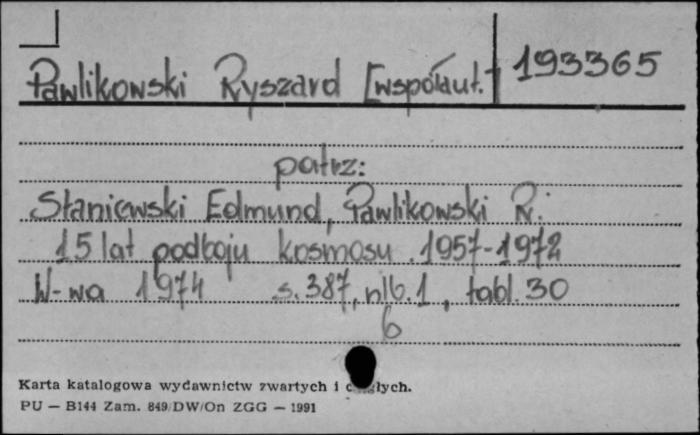 Pawlikowski Ryszard [współaut.] 193365
patrz:
Staniewski Edmund, Pawlikowski R.
15 lat podboju kosmosu. 1957-1972
W-wa 1974 s. 387, nlb. 1, tabl. 30
6
Karta katalogowa wydawnictw zwartych i
PU — B144 Zam. 849/DW/On ZGG — 1991